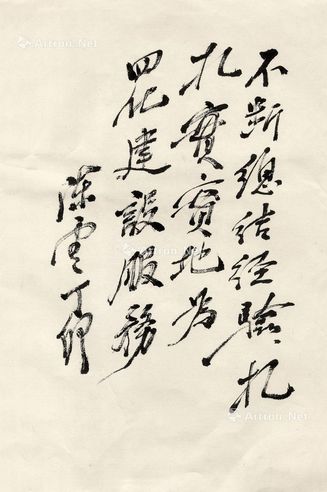 不断總结经驗、扎
扎實實地为
四化建設服務
陈云丁卯
Artron.Net
Artron.Net